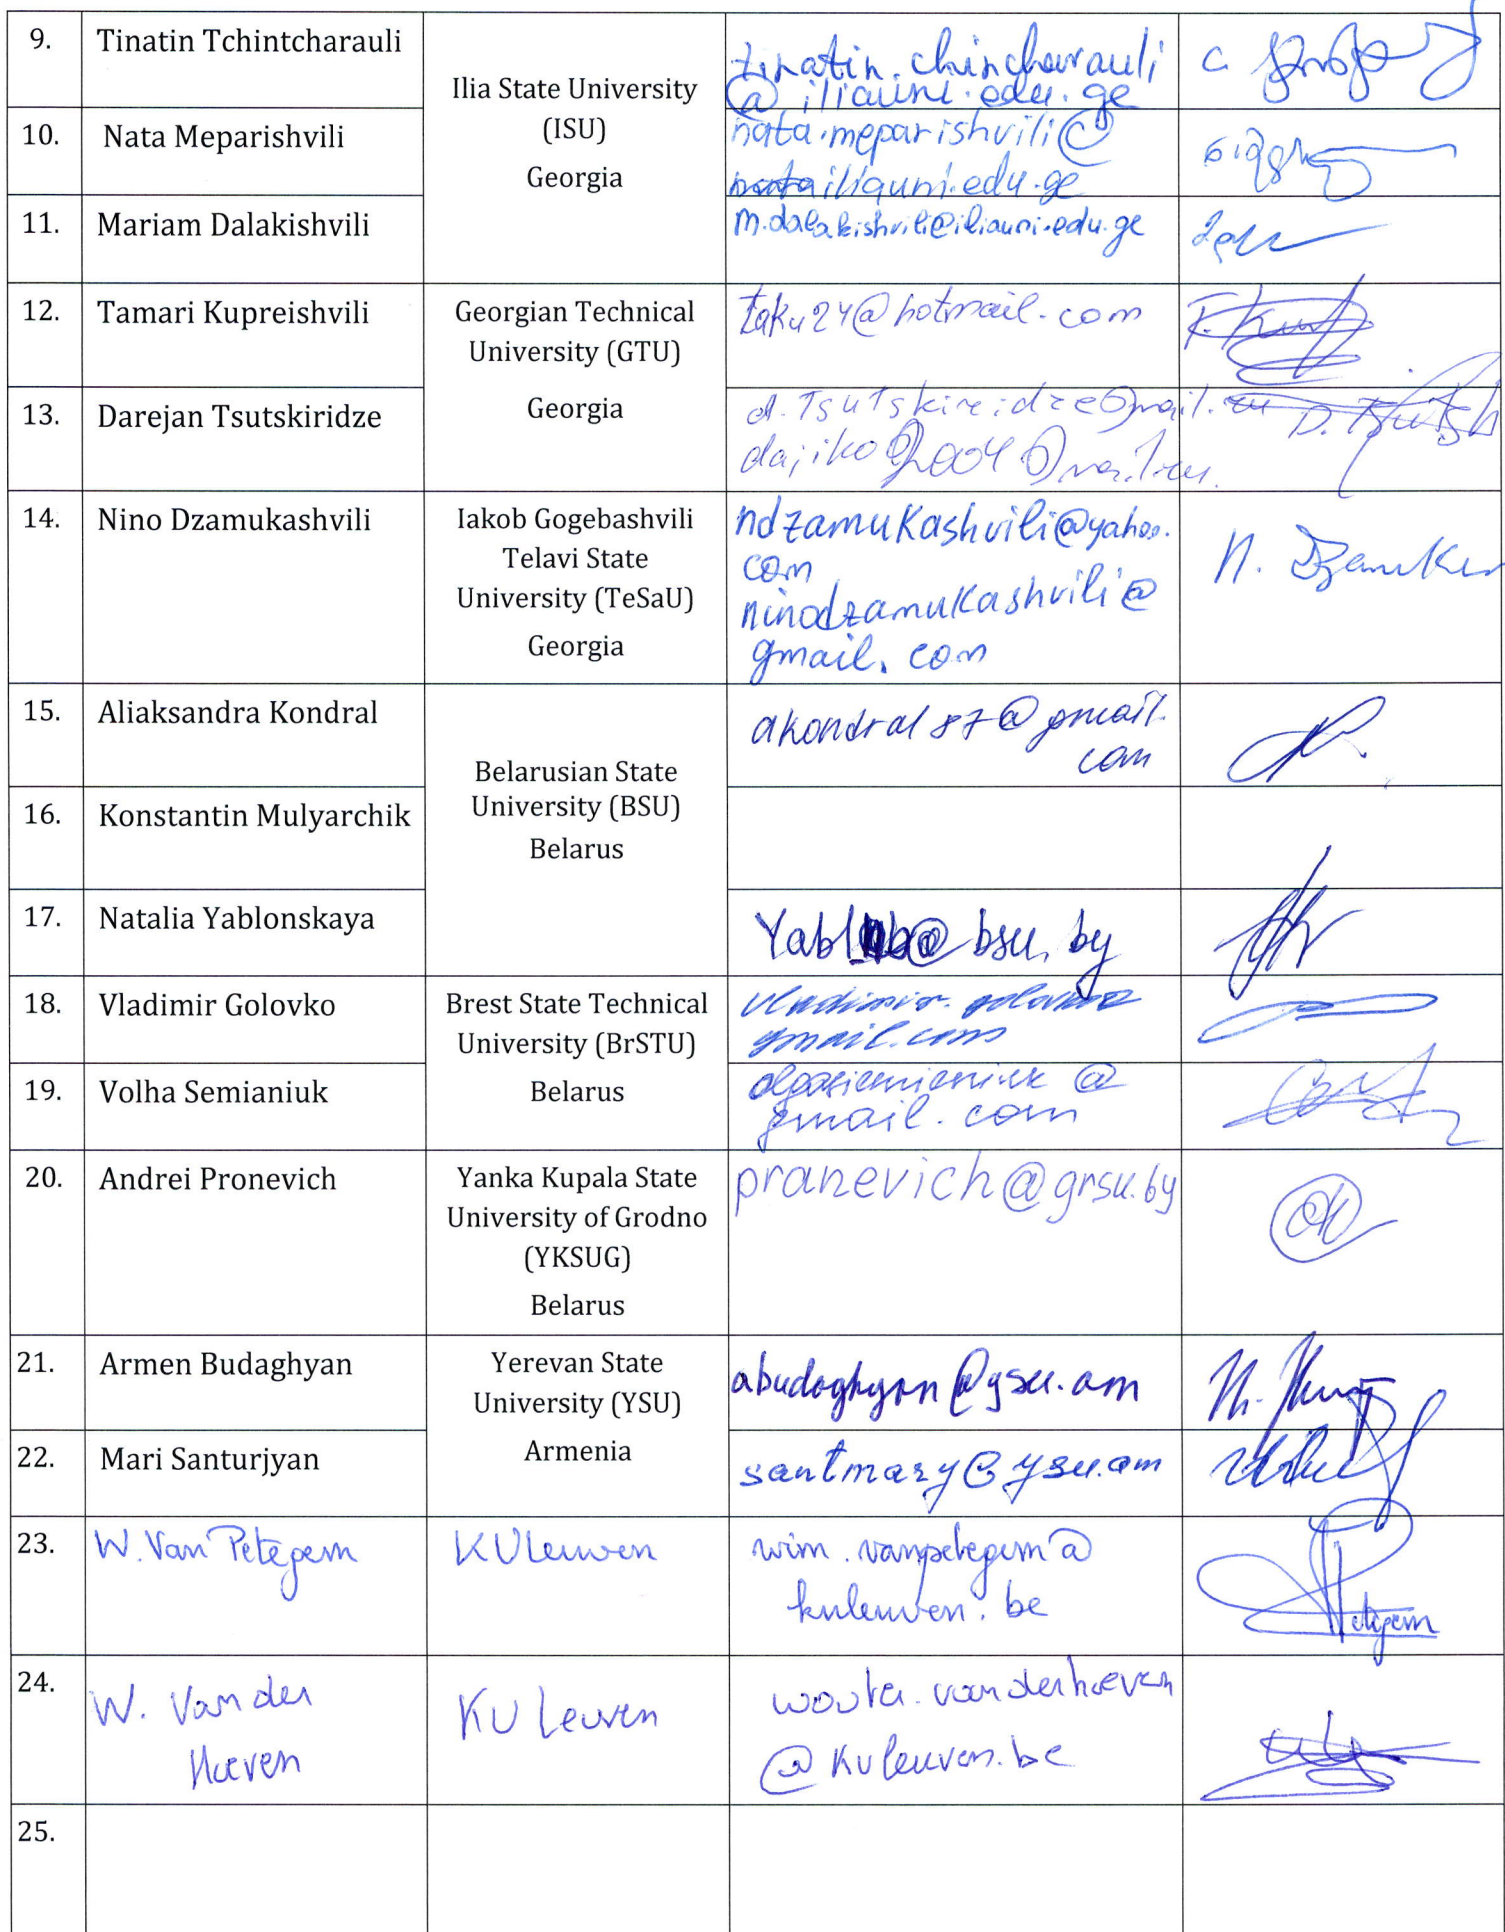 9. Tinatin Tchintcharauli
Ilia State University
(ISU)
Georgia
tinatin.chincharauli
@iliauni.edu.ge
10. Nata Meparishvili
nata.meparishvili@
iliauni.edu.ge
11. Mariam Dalakishvili
m.dalakishvili@iliauni.edu.ge
12. Tamari Kupreishvili
Georgian Technical
University (GTU)
Georgia
taku24@hotmail.com
13. Darejan Tsutskiridze
d.Tsutskiridze@mail.ru
dajiko2004@mail.ru.
D. Tsutsk
14. Nino Dzamukashvili
Iakob Gogebashvili
Telavi State
University (TeSaU)
Georgia
ndzamukashvili@yahoo.
com
ninodzamukashvili@
gmail.com
N. Dzamukas
15. Aliaksandra Kondral
Belarusian State
University (BSU)
Belarus
akondral87@gmail.
com
16. Konstantin Mulyarchik
17. Natalia Yablonskaya
@bsu.by
18. Vladimir Golovko
Brest State Technical
University (BrSTU)
Belarus
vladimir.golovko
gmail.com
19. Volha Semianiuk
@
gmail.com
20. Andrei Pronevich
Yanka Kupala State
University of Grodno
(YKSUG)
Belarus
pranevich@grsu.by
21. Armen Budaghyan
Yerevan State
University (YSU)
Armenia
abudaghyan@ysu.am
22. Mari Santurjyan
santmary@ysu.am
23. W. Van Petegem
KULeuven
wim.vanpetegem@
kuleuven.be
Petegem
24. W. Van der
Hoeven
KU Leuven
wouter.vanderhoeven
@kuleuven.be
25.